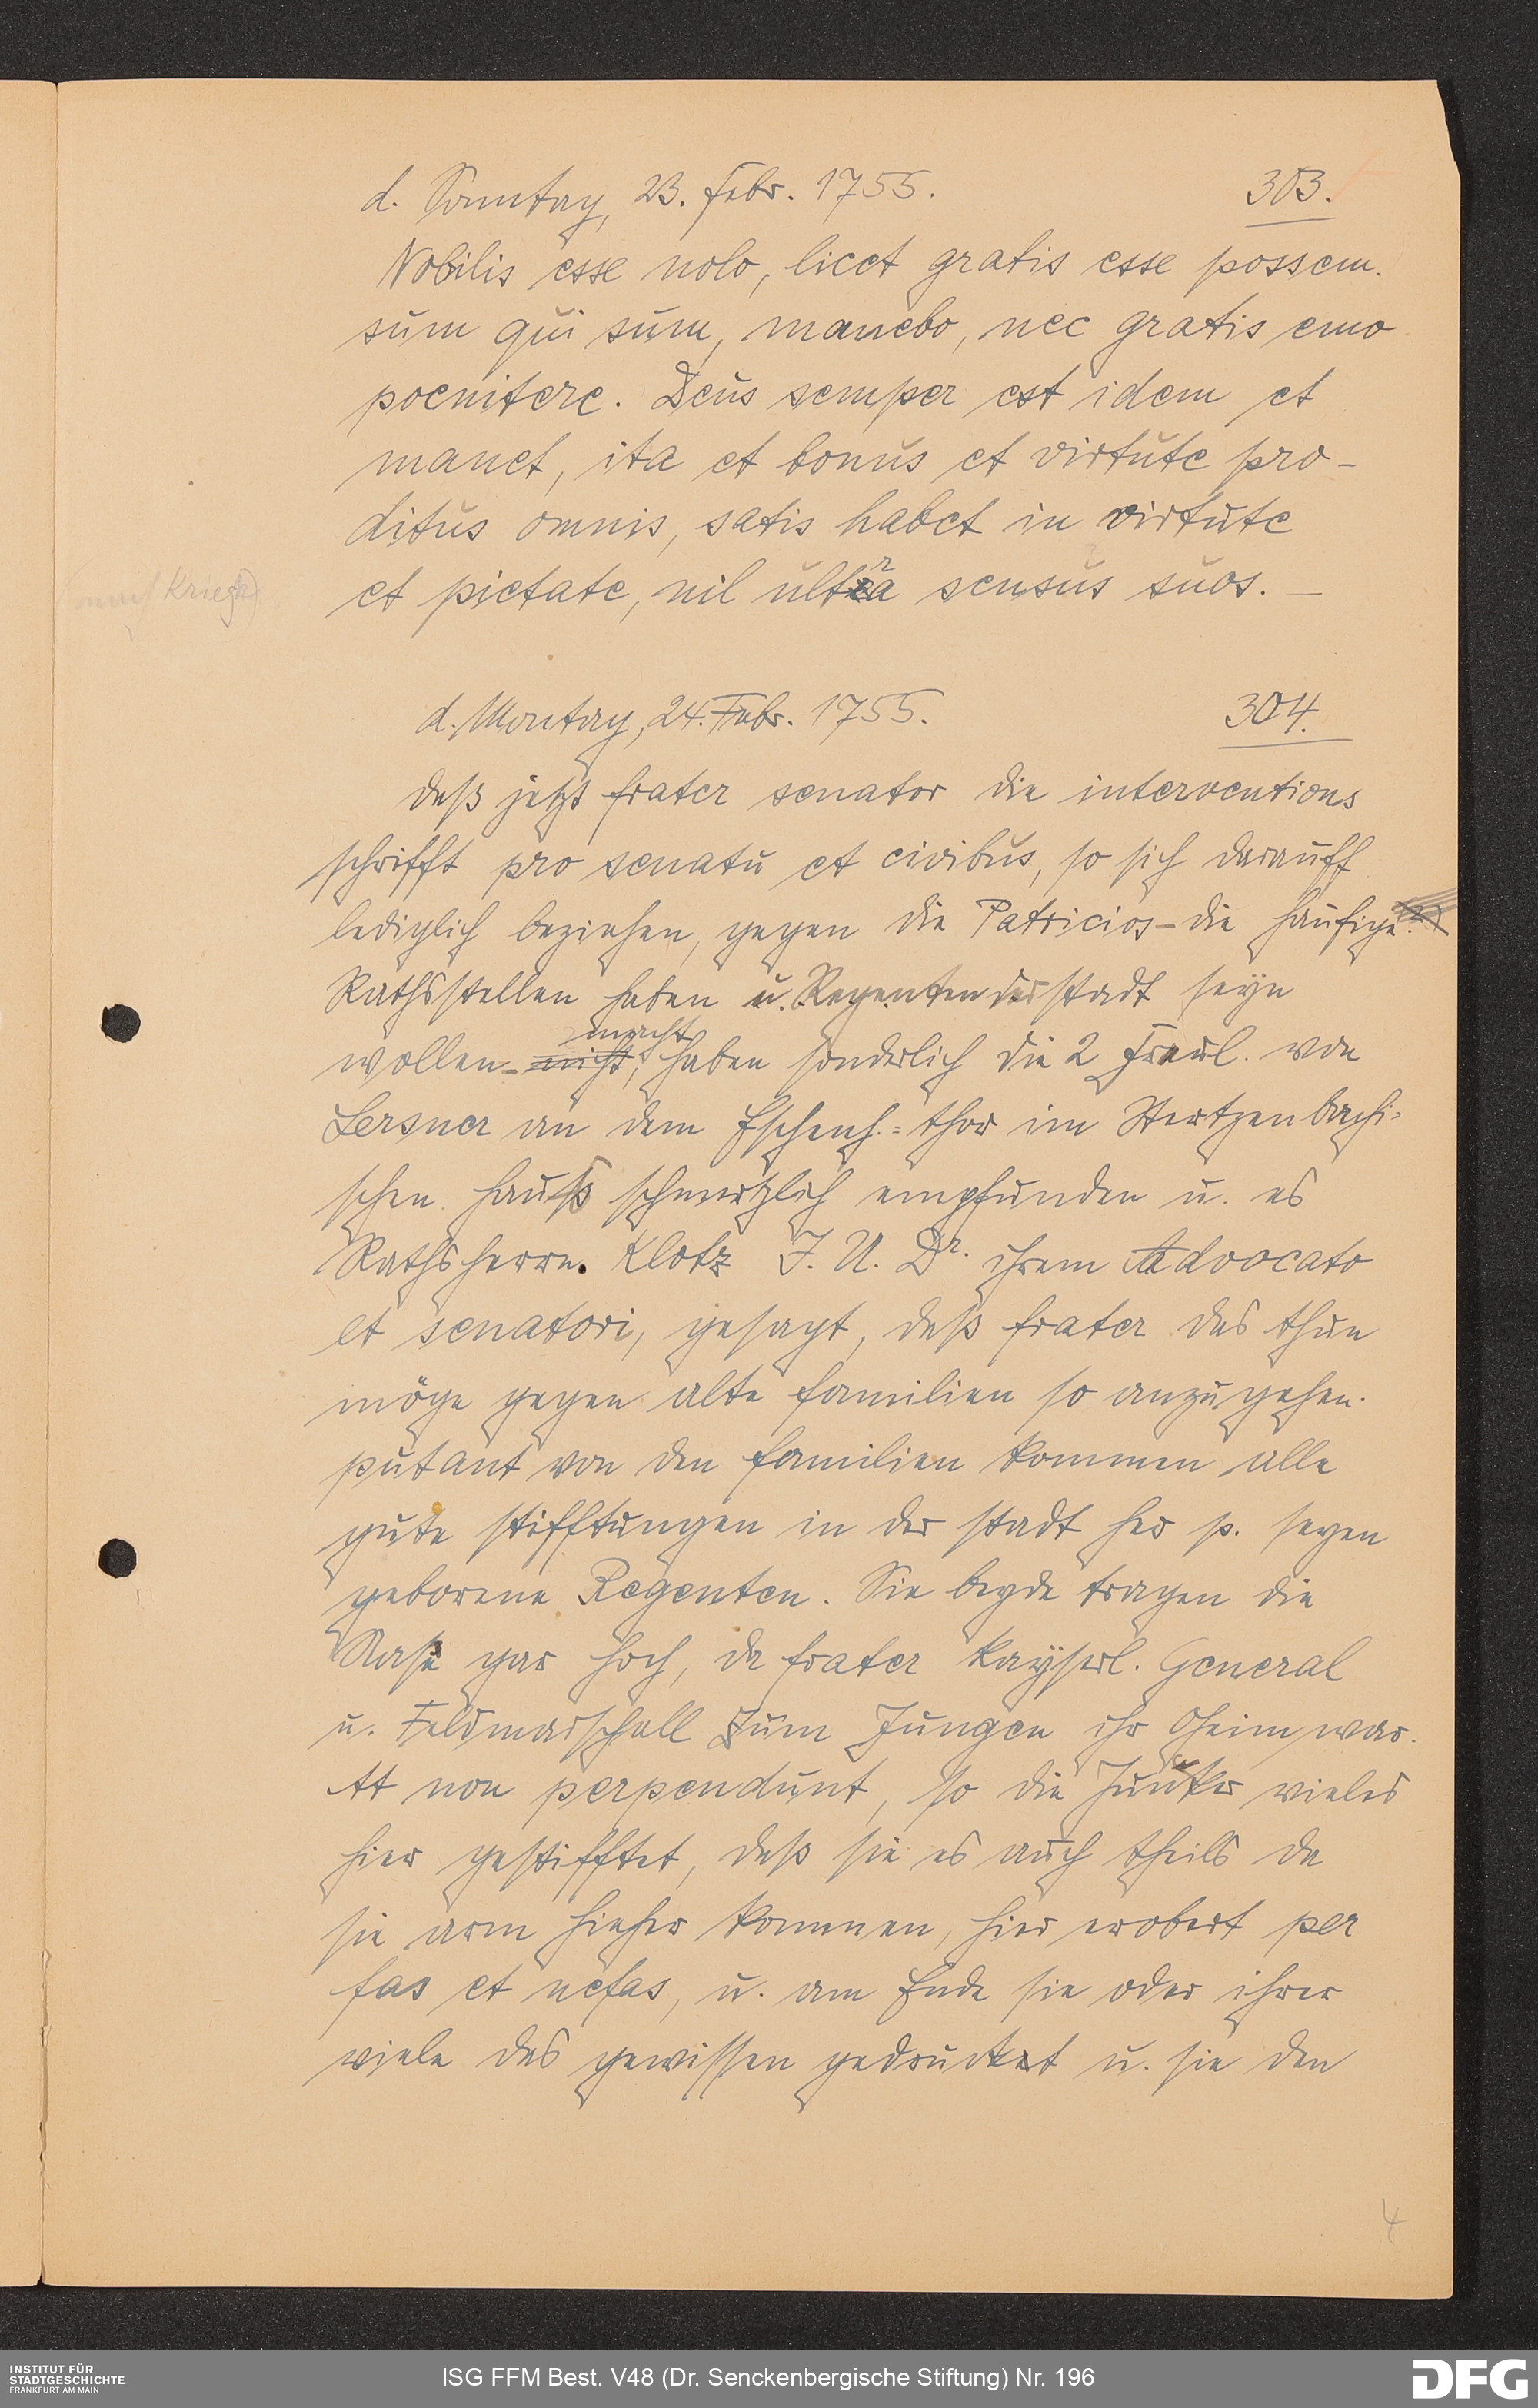 d. Sonntag, 23. Febr. 1755. 303.
Nobilis esse nolo, licet gratis esse possem.
sum qui sum, manebo, nec gratis emo
poenitere. Deus semper est idem et
manet, ita et bonus et virtute pro-
ditus omnis, satis habet in virtute
et pietate, nil ultra sensus suos. —
Kriegk)
d. Montag, 24. Febr. 1755. 304.
daß jetzt frater senator die interventions
schrifft pro senatu et civibus, so sich darauff
lediglich beziehen, gegen die Patricios - die häufige
Rathsstellen haben u. Regenten der stadt seyn
wollen - macht, haben sonderlich die 2 Fräul. von
Lersner an dem Eschenh.= thor im Stertzenbachi=
schen hauß schmertzlich empfunden u. es
Rathsherrn. Klotz J. U. Dr. ihrem Advocato
et senatori, gesagt, daß frater das thun
möge gegen alte familien so anzugehen.
putant von den familien kommen alle
gute stifftungen in der stadt her p. seyen
geborene Regenten. Sie beyde tragen die
Nase gar hoch, da frater kayserl. General
u. Feldmarschall zum Jungen ihr Oheim war.
At non perpendunt, so die Junker vieles
hier gestifftet, daß sie es auch theils da
sie arm hieher kommen, hier erobert per
fas et nefas, u. am Ende sie oder ihrer
viele das gewissen gedrucket u. sie den
4
INSTITUT FÜR
STADTGESCHICHTE
FRANKFURT AM MAIN
ISG FFM Best. V48 (Dr. Senckenbergische Stiftung) Nr. 196
DFG